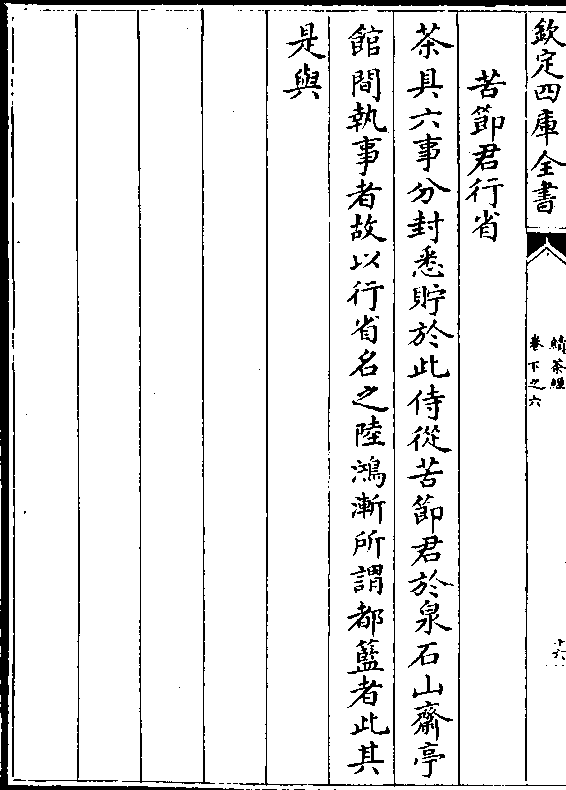 欽定四庫全書
續茶經
卷下之六
十六
苦節君行省
茶具六事分封悉貯於此侍從苦節君於泉石山齋亭
館間執事者故以行省名之陸鴻漸所謂都籃者此其
是與